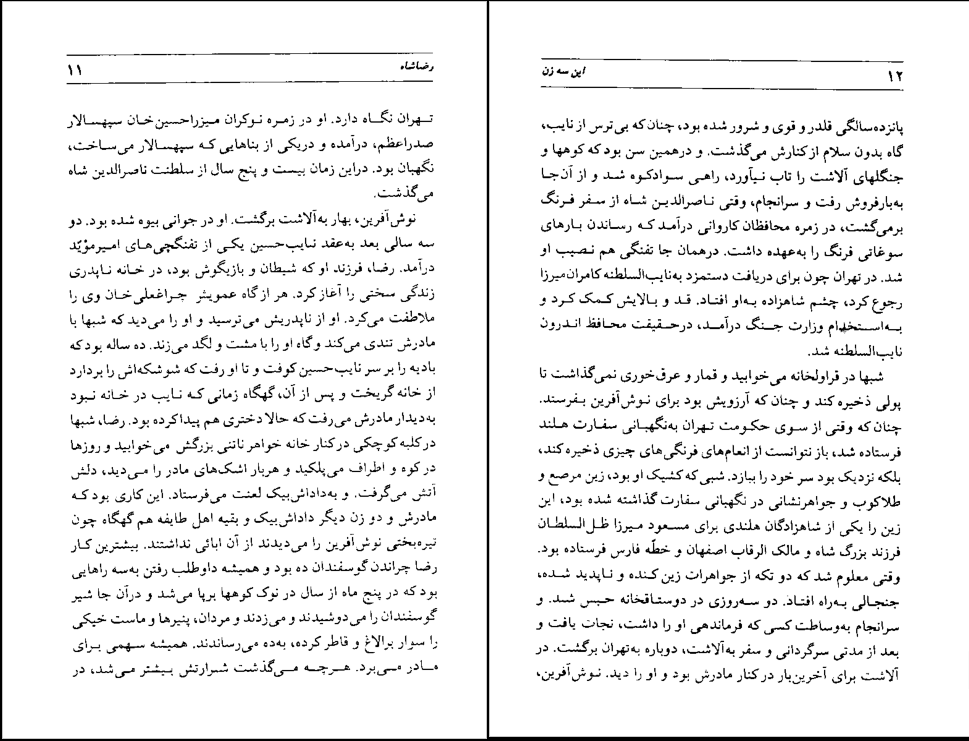 رضاشاه
۱۱
تهران نگاه دارد. او در زمره نوکران میرزاحسین‌خان سپهسالار
صدراعظم، درآمده و دریکی از بناهایی که سپهسالار می‌ساخت،
نگهبان بود. دراین زمان بیست و پنج سال از سلطنت ناصرالدین شاه
می‌گذشت.
نوش‌آفرین، بهار به‌آلاشت برگشت. او در جوانی بیوه شده بود. دو
سه سالی بعد به‌عقد نایب‌حسین یکی از تفنگچی‌های امیرمؤید
درآمد. رضا، فرزند او که شیطان و بازیگوش بود، در خانه ناپدری
زندگی سختی را آغاز کرد. هر از گاه عمویش چراغعلی‌خان وی را
ملاطفت می‌کرد. او از ناپدریش می‌ترسید و او را می‌دید که شبها با
مادرش تندی می‌کند و گاه او را با مشت و لگد می‌زند. ده ساله بود که
بادیه را بر سر نایب‌حسین کوفت و تا او رفت که شوشکه‌اش را بردارد
از خانه گریخت و پس از آن، گهگاه زمانی که نایب در خانه نبود
به‌دیدار مادرش می‌رفت که حالا دختری هم پیدا کرده بود. رضا، شبها
در کلبه کوچکی در کنار خانه خواهر ناتنی بزرگش می‌خوابید و روزها
در کوه و اطراف می‌پلکید و هربار اشک‌های مادر را می‌دید، دلش
آتش می‌گرفت. و به‌داداش‌بیک لعنت می‌فرستاد. این کاری بود که
مادرش و دو زن دیگر داداش‌بیک و بقیه اهل طایفه هم گهگاه چون
تیره‌بختی نوش‌آفرین را می‌دیدند از آن ابائی نداشتند. بیشترین کار
رضا چراندن گوسفندان ده بود و همیشه داوطلب رفتن به‌سه راهایی
بود که در پنج ماه از سال در نوک کوهها برپا می‌شد و درآن جا شیر
گوسفندان را می‌دوشیدند و می‌زدند و مردان، پنیرها و ماست خیکی
را سوار برالاغ و قاطر کرده، به‌ده می‌رساندند. همیشه سهمی برای
مادر می‌برد. هرچه می‌گذشت شرارتش بیشتر می‌شد، در
این سه زن
۱۲
پانزده‌سالگی قلدر و قوی و شرور شده بود، چنان که بی‌ترس از نایب،
گاه بدون سلام از کنارش می‌گذشت. و درهمین سن بود که کوهها و
جنگلهای آلاشت را تاب نیاورد، راهی سوادکوه شد و از آن‌جا
به‌بارفروش رفت و سرانجام، وقتی ناصرالدین شاه از سفر فرنگ
برمی‌گشت، در زمره محافظان کاروانی درآمد که رساندن بارهای
سوغاتی فرنگ را به‌عهده داشت. درهمان جا تفنگی هم نصیب او
شد. در تهران چون برای دریافت دستمزد به‌نایب‌السلطنه کامران‌میرزا
رجوع کرد، چشم شاهزاده به‌او افتاد. قد و بالایش کمک کرد و
به‌استخدام وزارت جنگ درآمد، درحقیقت محافظ اندرون
نایب‌السلطنه شد.
شبها در قراولخانه می‌خوابید و قمار و عرق‌خوری نمی‌گذاشت تا
پولی ذخیره کند و چنان که آرزویش بود برای نوش‌آفرین بفرستد.
چنان که وقتی از سوی حکومت تهران به‌نگهبانی سفارت هلند
فرستاده شد، باز نتوانست از انعام‌های فرنگی‌های چیزی ذخیره کند،
بلکه نزدیک بود سر خود را ببازد. شبی که کشیک او بود، زین مرصع و
طلاکوب و جواهرنشانی در نگهبانی سفارت گذاشته شده بود، این
زین را یکی از شاهزادگان هلندی برای مسعود میرزا ظل‌السلطان
فرزند بزرگ شاه و مالک الرقاب اصفهان و خطّه فارس فرستاده بود.
وقتی معلوم شد که دو تکه از جواهرات زین کنده و ناپدید شده،
جنجالی به‌راه افتاد. دو سه‌روزی در دوستاقخانه حبس شد. و
سرانجام به‌وساطت کسی که فرماندهی او را داشت، نجات یافت و
بعد از مدتی سرگردانی و سفر به‌آلاشت، دوباره به‌تهران برگشت. در
آلاشت برای آخرین‌بار در کنار مادرش بود و او را دید. نوش‌آفرین،